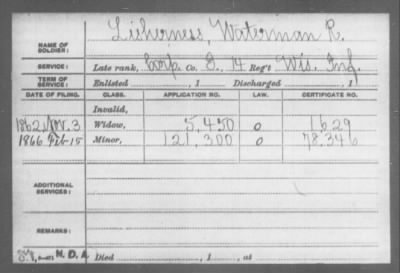 NAME OF SOLDIER: Lisherness, Waterman R.
SERVICE: Late rank, Corp Co. D, 14 Reg't Wis. Inf.
TERM OF SERVICE: Enlisted , 1 Discharged , 1
DATE OF FILING. CLASS. APPLICATION NO. LAW. CERTIFICATE NO.
Invalid,
1862 Nov. 3 Widow, 5,450 0 1629
1866 Feb 15 Minor, 121,300 0 78,346
ADDITIONAL SERVICES:
REMARKS:
N. D. A. Died , 1 , at